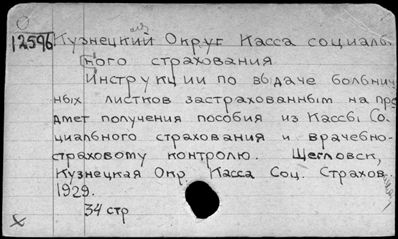 12596 Кузнецкий Округ Касса социаль
ного страхования
Инструкции по выдаче больнич
ных листков застрахованным на пре
дмет получения пособия из Кассы Со-
циального страхования и врачебно-
страховому контролю. Щегловск,
Кузнецкая Окр. Касса Соц. Страхов.
1929.
34 стр